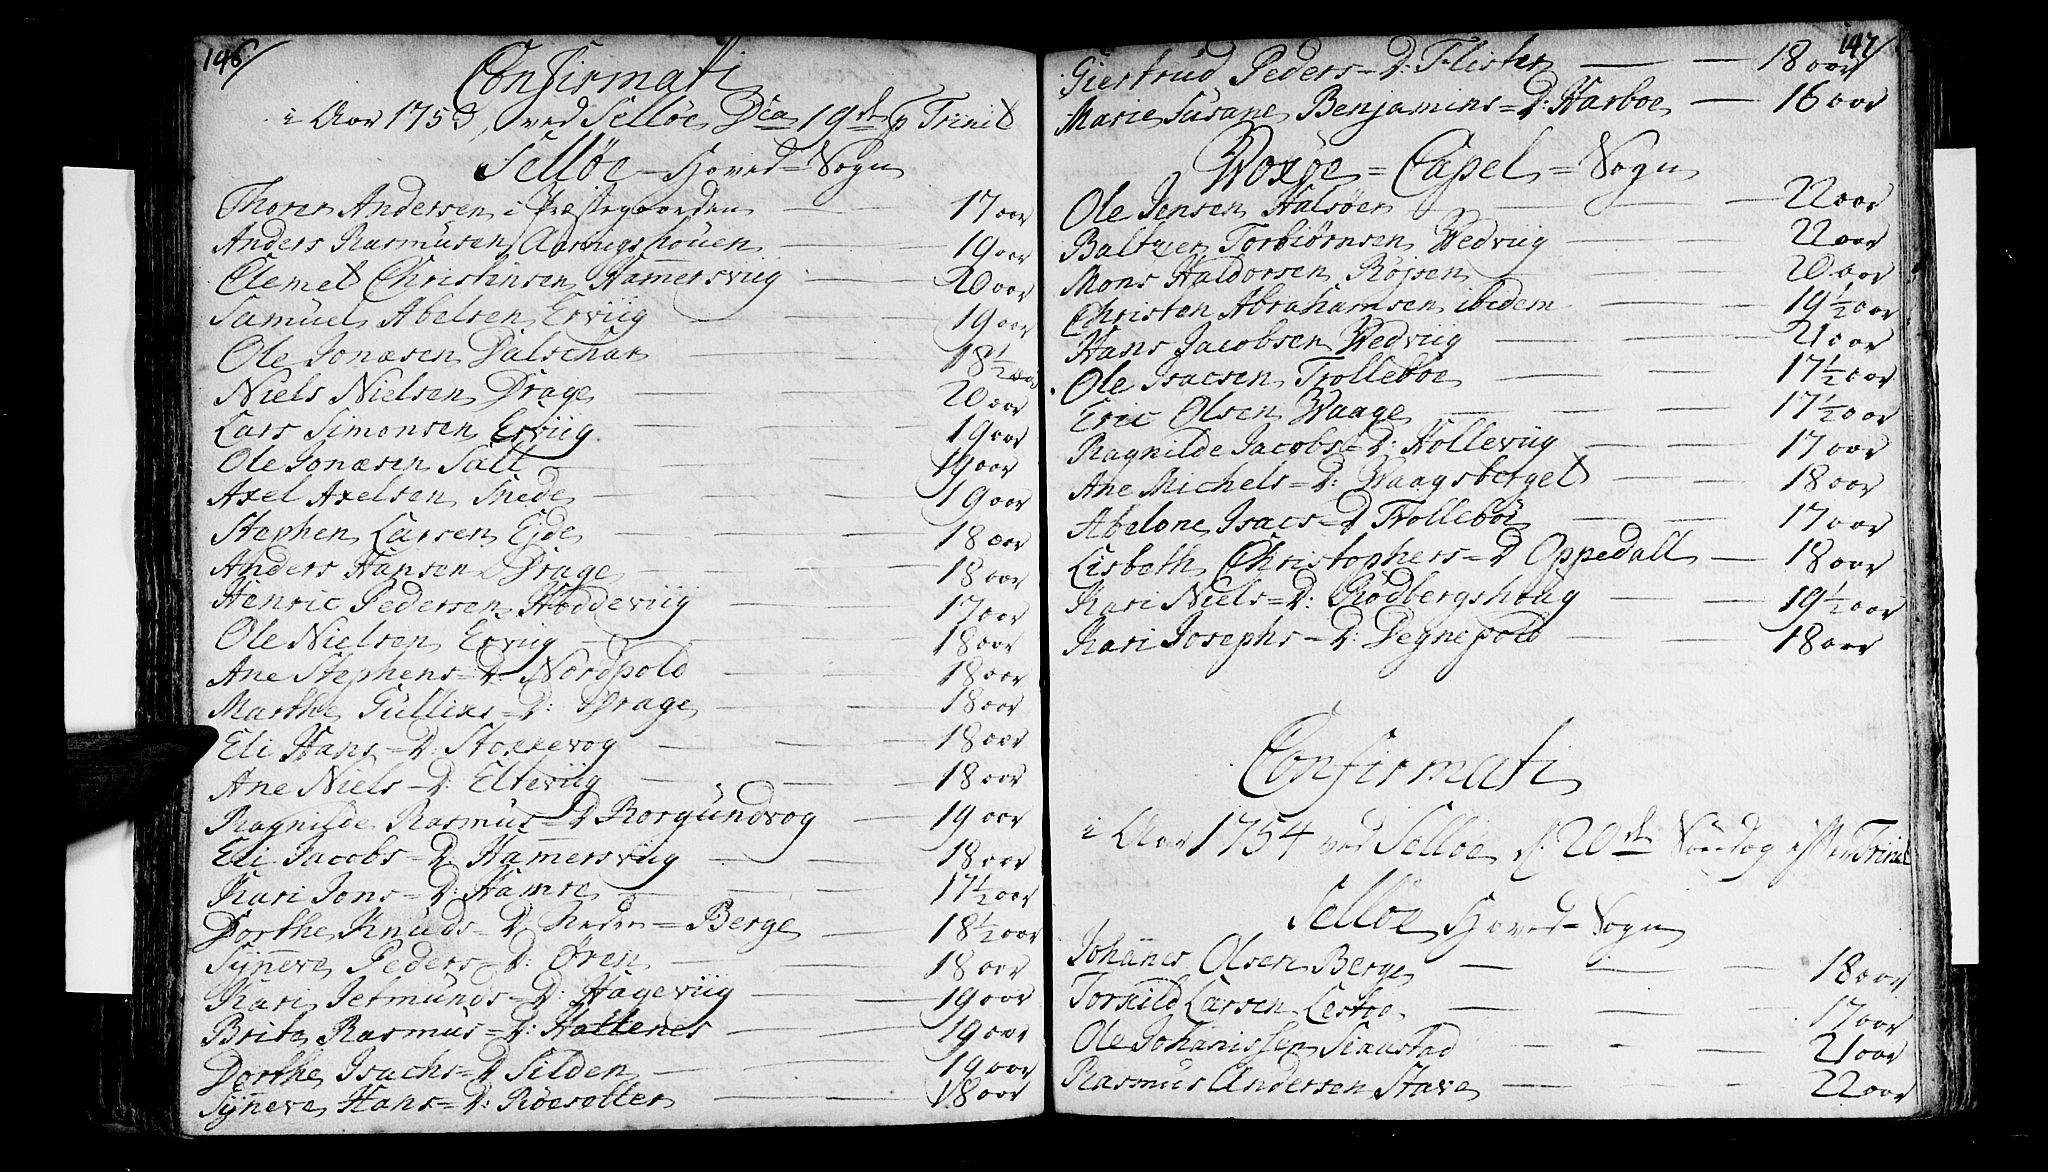 146/
Confirmati
i Aar 1753, ved Selløe Dca 19de p Trinit
Selløe - Hoved = Sogn
Thorer Andersen i Præstegaarden — 17 aar
Anders Rasmusen — 19 aar
Clemet Christensen Hamersviig — 20 aar
Samuel Abelsen Erviig — 19 aar
Ole Jonæsen — 18 1/2 aar
Niels Nielsen Drage — 20 aar
Lars Simonsen Erviig — 19 aar
Ole Jonæsen Salt — 19 aar
Axel Axelsen — 19 aar
Stephen Larsen Ejde — 18 aar
Anders Hansen Drage — 18 aar
Henric Pedersen Hoddeviig — 17 aar
Ole Nielsen Erviig — 18 aar
Ane Stephens = D: Nordpold — 18 aar
Marthe Gullixs = D: Drage — 18 aar
Eli Hans = D: Stoxevog — 18 aar
Ane Niels = D: Elteviig — 18 aar
Ragnilde Rasmus = D Borgundvog — 19 aar
Eli Jacobs = D: Hamersviig — 18 aar
Kari Jons = D: Hamre — 17 1/2 aar
Dorthe Knuds = D: Neden = Berge — 18 1/2 aar
Synneve Peders = D: Øren — 18 aar
Kari Jetmunds = D: Hageviig — 19 aar
Brite Rasmus = D: Hattenes — 19 aar
Dorthe Isachs = D Silden — 19 aar
Synneve Hans = D: Røesetter — 18 aar
147/
Giertrud Peders = D: Flister — 18 aar
Marie Susane Benjamins = D: Harboe — 16 aar
Woxøe = Capel = Sogn
Ole Jensen Halsøer — 22 aar
Baltzer Torbiørnsen Wedviig — 22 aar
Mons Haldorsen Røjsen — 20 aar
Christen Abrahamsen ibidem — 19 1/2 aar
Hans Jacobsen Wedviig — 21 aar
Ole Isacsen Trolleboe — 17 1/2 aar
Eric Olsen Waage — 17 1/2 aar
Ragnilde Jacobs = D: Holleviig — 17 aar
Ane Michels = D: Waagsberget — 18 aar
Abelone Isacs = D Trolleboe — 17 aar
Lisbeth Christophers = D Oppedall — 18 aar
Kari Niels = D: Rødbergshoug — 19 1/2 aar
Kari Josephs = D: Degnepold — 18 aar
Confirmati
i Aar 1754 ved Selløe d. 20de Søndag Trinit
Selløe Hoved = Sogn
Johannes Olsen Berge — 18 aar
Torkild Larsen Lestoe — 17 aar
Ole Johanissen — 21 aar
Rasmus Andersen Stave — 22 aar